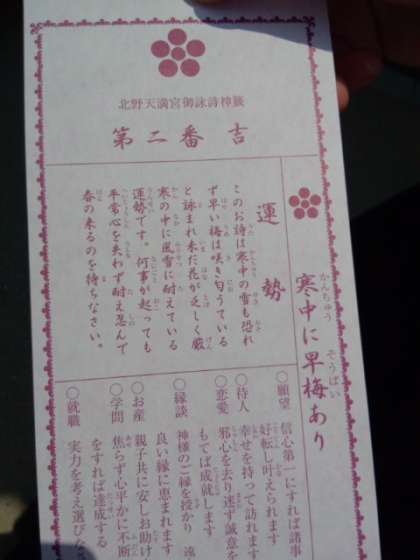 北野天満宮御詠詩神籤
第二番 吉
寒中に早梅あり
運勢
このお詩は寒中の雪も恐れ
ず早い梅は咲き匂うている
と詠まれ未だ花が乏しく厳
寒の中に風雪に耐えている
運勢です。何事が起っても
平常心を失わず耐え忍んで
春の来るのを待ちなさい。
○願望 信心第一にすれば諸事
好転し叶えられます
○待人 幸せを持って訪れます
○恋愛 邪心を去り迷ず誠意を
もてば成就します
○縁談 神様のご縁を授かり 遠
良い縁に恵まれます
○お産 親子共に安しお助け
○学問 焦らず心平かに不断
をすれば達成する
○就職 実力を考え選び